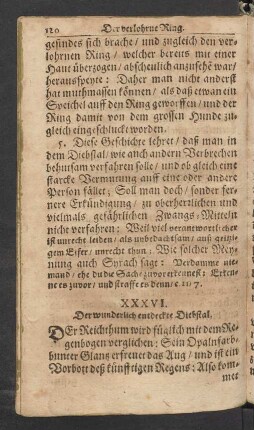 120 Der verlohrne Ring.
gesundes sich brache / und zugleich den ver-
lohrnen Ring / welcher bereits mit einer
Haut überzogen / abscheulich anzusehē war /
herausspeyte: Daher man nicht anderst
hat muthmassen können / als daß etwan ein
Speichel auff den Ring geworffen / und der
Ring damit von dem grossen Hunde zu-
gleich eingeschluckt worden.
5. Diese Geschichte lehret / daß man in
dem Diebstal / wie auch andern Verbrechen
behutsam verfahren solle / und ob gleich eine
starcke Vermutung auff eine oder andere
Person fället; Soll man doch / sonder fer-
nere Erkündigung / zu oberherrlichen und
vielmals gefährlichen Zwangs-Mitteln
nicht verfahren: Weil viel verantwortlicher
ist unrecht leiden / als unbedachtsam / auß
Eifer / unrecht thun. Wie solcher Mey-
nung auch Syrach sagt: Verdamme nie-
mand / ehe du die Sach zuvor erkennest: Erken-
ne es zuvor / und straffe es denn / c 11/7.
XXXVI.
Der wunderlich entdeckte Diebstal.
DEr Reichthum wird füglich mit dem Re-
genbogen verglichen: Sein Opalnfarb-
bunter Glantz erfreuet das Aug / und ist ein
Vorbott deß künfftigen Regens: Also kom-
met